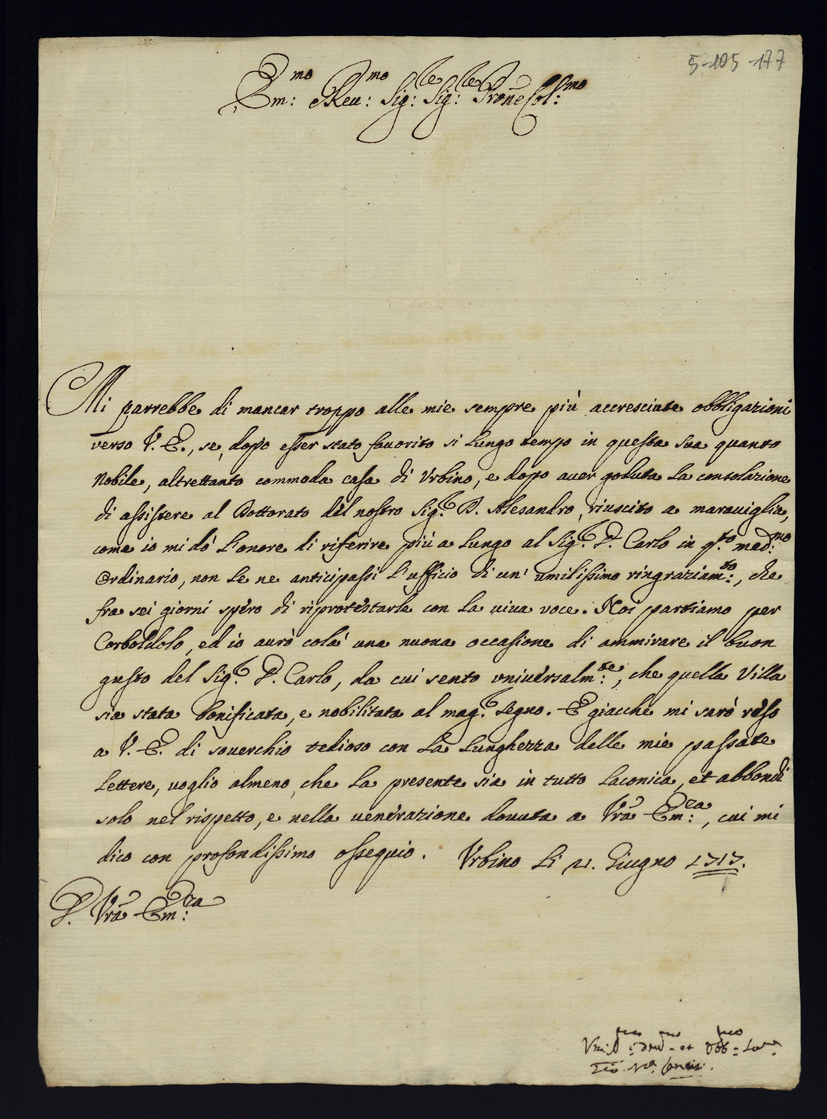 5-105-177
Em:mo e Reu:mo Sig:re Sig:re Prone Col:mo
Mi parrebbe di mancar troppo alle mie sempre più accresciute obbligazioni
verso V. E., se, dopo esser stato favorito si lungo tempo in questa sua quanto
Nobile, altrettanto commoda casa di Urbino, e dopo aver goduta la consolazione
di assistere al Dottorato del nostro Sig.r D. Alesandro, riuscito a maraviglia,
come io mi dò l'onore di riferire più a lungo al Sig.r D. Carlo in q.to med:mo
Ordinario, non le ne anticipassi l'ufficio di un' umilissimo ringraziam:to, che
fra sei giorni spero di riprotestarle con la viva voce. Noi partiamo per
Corboldolo, ed io avrò colà una nuova occasione di ammirare il buon
gusto del Sig.r D. Carlo, da cui sento universalm:te, che quella Villa
sia stata bonificata, e nobilitata al mag.r segno. E giacche mi sarò reso
a V. E. di soverchio tedioso con la lunghezza delle mie passate
lettere, voglio almeno, che la presente sia in tutto laconica, et abbondi
solo nel rispetto, e nella venerazione dovuta a Vra Em:za, cui mi
dico con profondissimo ossequio. Urbino li 21. Giugno 1717.
D. Vra Em:za